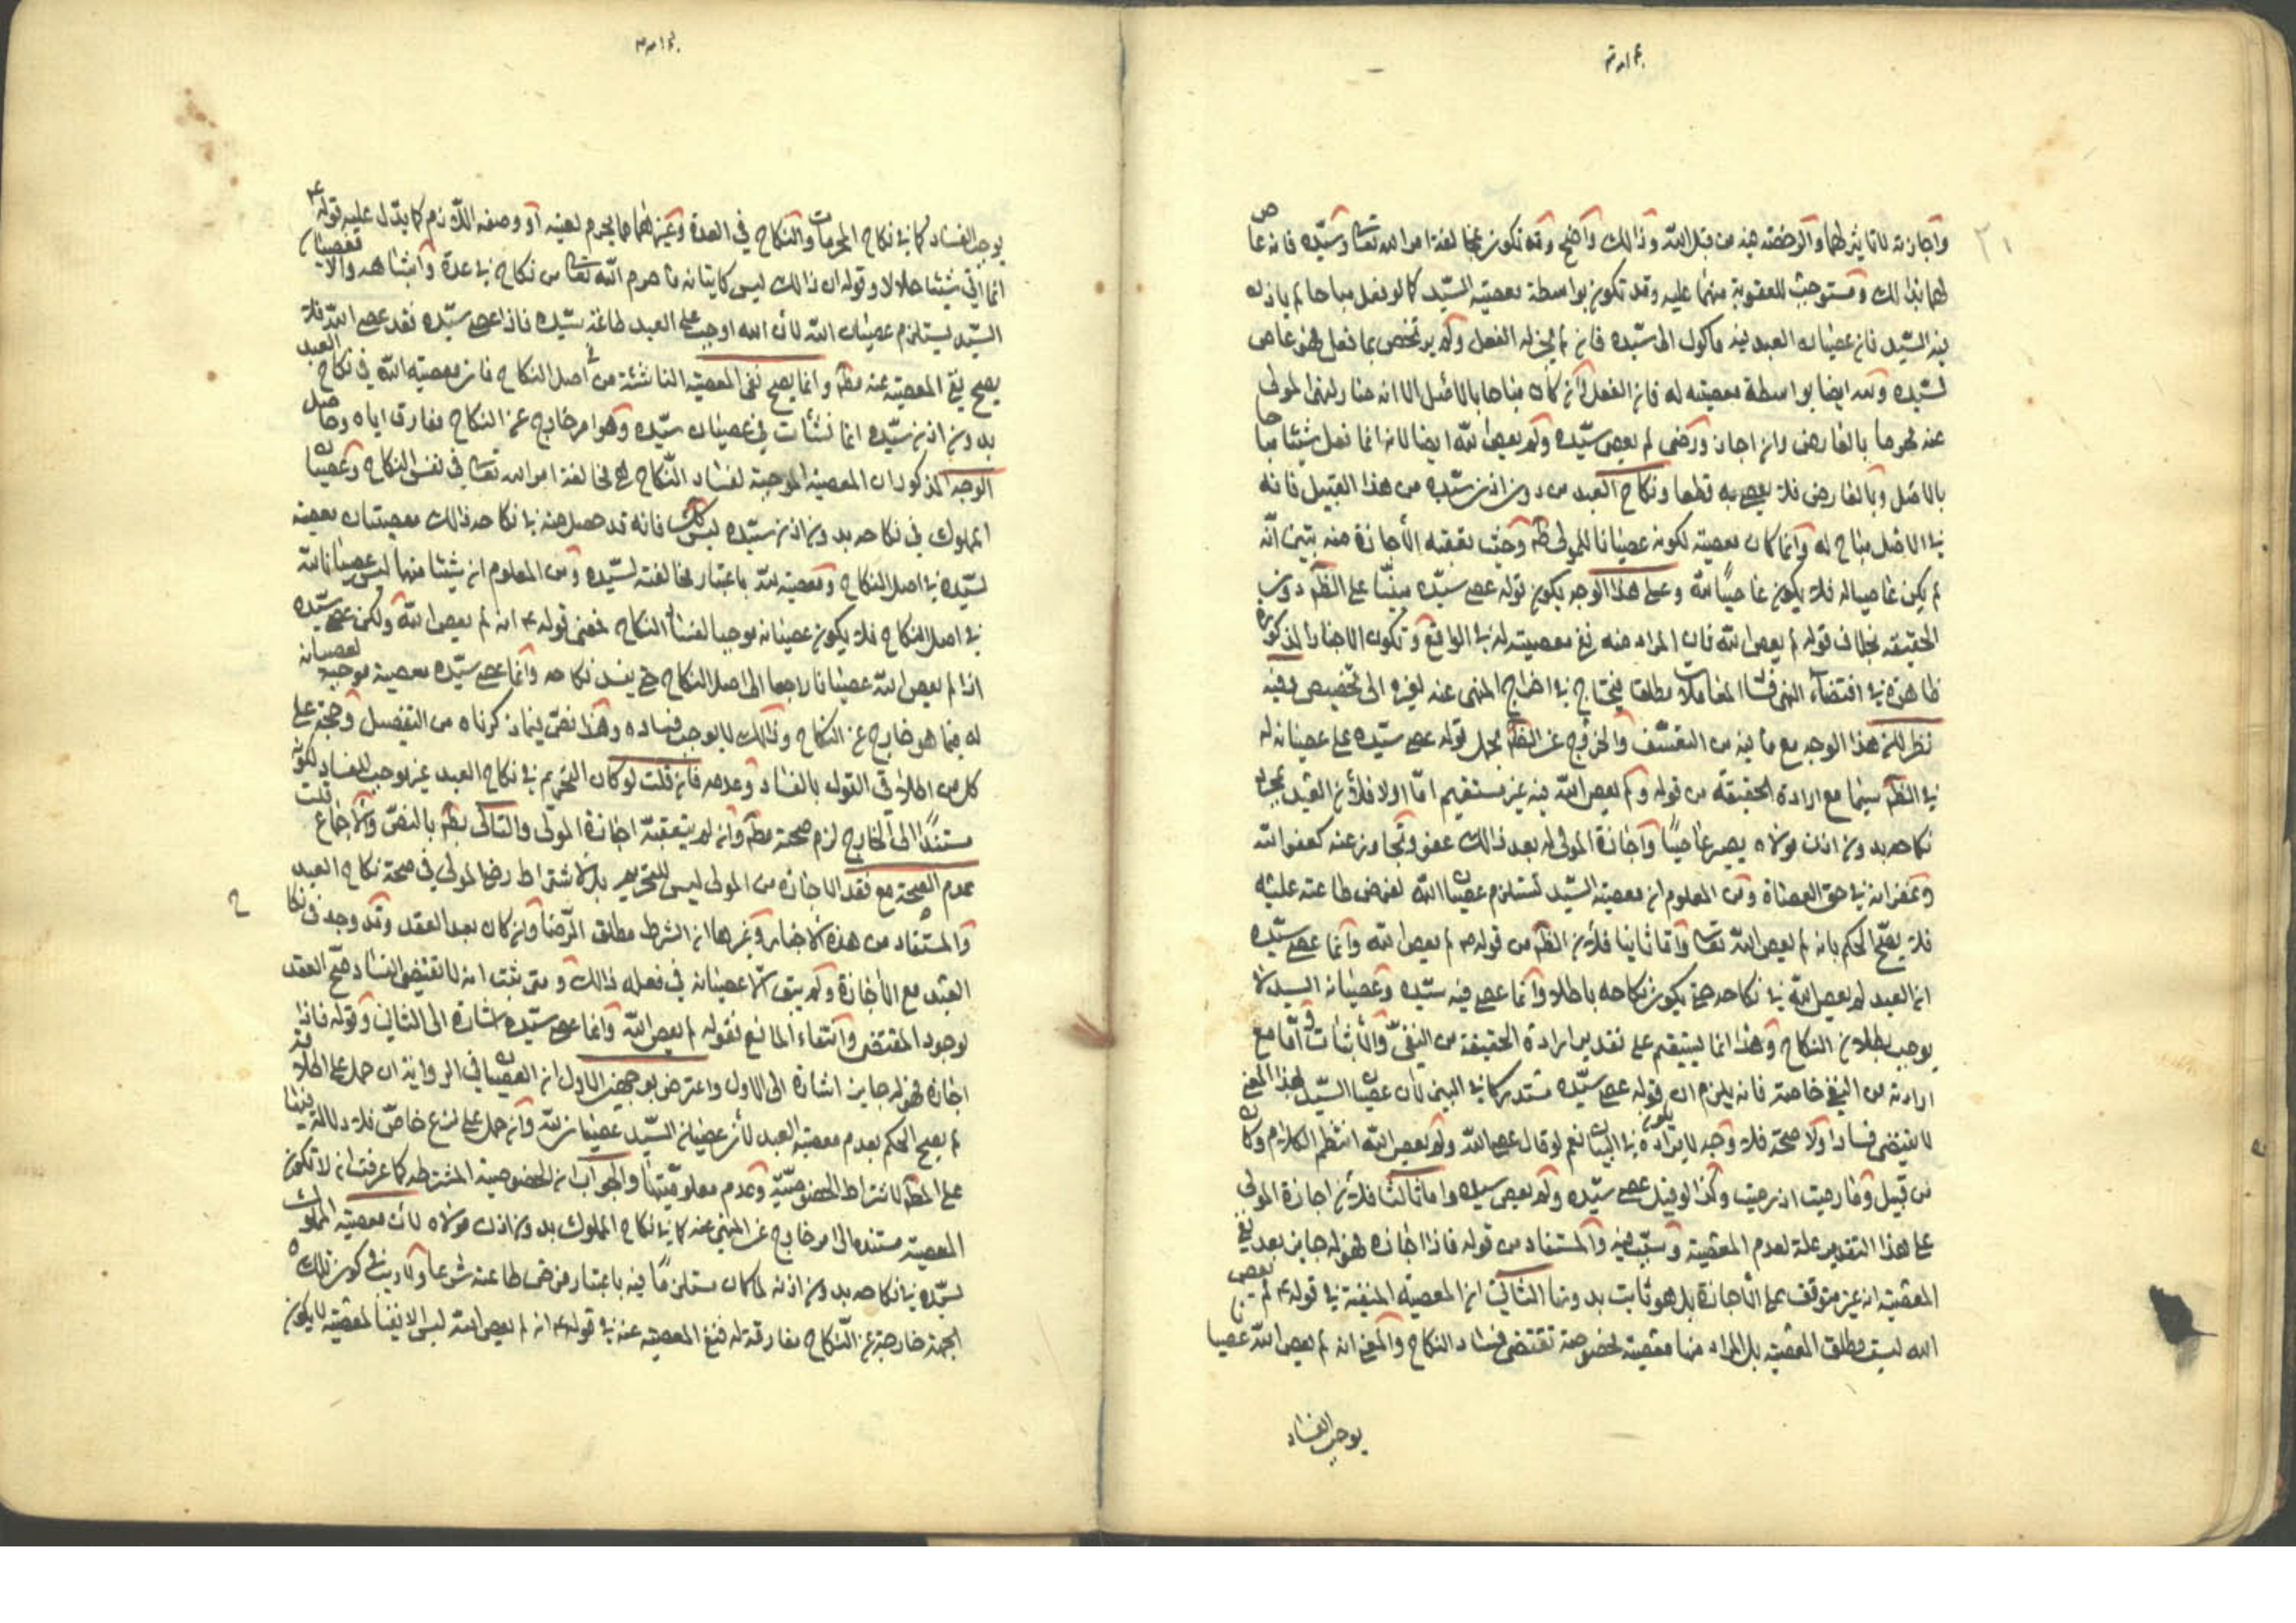 واجازته لا تاثير لها والرخصة فيه من قبل الله وذلك واضح وقد تكون مخالفة امر الله تعالى وسيده فانه عاص
لهما بذلك ومستوجب للعقوبة منهما عليه وقد تكون بواسطة معصية السيد كما لو فعل مباحا لم ياذن له
فيه السيد فان عصيان العبد فيه موكول الى سيده فان لم يجز له الفعل ولم يرتخص بما فعل فهو عاص
لسيده ولله ايضا بواسطة معصيته له فان الفعل وان كان مباحا بالاصل الا انه صار لنهى المولى
عنه محرما بالعارض وان اجاز ورضى لم يعص سيده ولم يعص الله ايضا لانه انما فعل شيئا مباحا
بالاصل وبالعارض فلا يعص به قطعا ونكاح العبد من دون اذن سيده من هذا القبيل فانه
في الاصل مباح له وانما كان معصية لكونه عصيانا للمولى ظه وحيث تعقبه الاجازة منه تبين انه
لم يكن عاصيا له فلا يكون عاصيا لله وعلى هذا الوجه يكون قوله عصى سيده مبنيا على الظه دون
الحقيقة بخلاف قوله لم يعص الله فان المراد منه رفع معصيته له في الواقع وتكون الاخبار المذكورة
ظاهرة في اقتضاء النهى فساد المعاملات مطلقا فيحتاج في اخراج المنهى عنه لغيره الى تخصيص وفيه
نظر لان هذا الوجه مع ما فيه من التعسف والخروج عن الظه بحمل قوله عصى سيده على عصيانه له
في الظه سيما مع ارادة الحقيقة من قوله ولم يعص الله فيه غير مستقيم اما اولا فلان العبد بمجرد
نكاحه بدون اذن مولاه يصير عاصيا واجازة المولى له بعد ذلك عفو وتجاوز عنه كعفو الله
وغفرانه في حق العصاة ومن المعلوم ان معصية السيد تستلزم عصيان الله لفرض طاعته عليه
فلا يصح الحكم بانه لم يعص الله تعالى واما ثانيا فلان الظه من قوله ع لم يعص الله وانما عصى سيده
ان العبد لم يعص الله في نكاحه حتى يكون نكاحه باطلا وانما عصى فيه سيده وعصيانه السيد لا
يوجب بطلان النكاح وهذا انما يستقيم على تقدير ارادة الحقيقة من النفى والاثبات واما مع
ارادته من النفي خاصة فانه يلزم ان يكون قوله عصى سيده مستدركا في البين لان عصيان السيد بهذا المعنى
لا يقتضى فسادا ولا صحة فلا وجه لايراده في البيان نعم لو قال عصى الله ولم يعص الله انتظم الكلام وكان
من قبيل وما رميت اذ رميت وكذا لو قيل عصى سيده ولم يعص سيده واما ثالثا فلان اجازة المولى
على هذا التقدير علة لعدم المعصية وسبب فيه والمستفاد من قوله فاذا اجازه فهو له جايز بعد نفي
المعصية انه غير متوقف على الاجازة بل هو ثابت بدونها الثاني ان المعصية المنفية في قوله ع لم يعص
الله ليست مطلق المعصية بل المراد منها معصية مخصوصة تقتضى فساد النكاح والمعنى انه لم يعص الله عصيانا
يوجب الفساد
يوجب الفساد كما في نكاح المحرمات والنكاح في العدة وغيرهما مما يحرم لعينه او وصفه اللازم كما يدل عليه قوله ع
انما اتى شيئا حلالا وقوله ان ذلك ليس كاتيانه ما حرم الله تعالى من نكاح في عدة واشباهه والا فعصيان
السيد يستلزم عصيان الله لان الله اوجب على العبد طاعة سيده فاذا عصى سيده فقد عصى الله فلا
يصح نفي المعصية عنه مطه وانما يصح نفى المعصية الناشئة من اصل النكاح فان معصية الله في نكاح العبد
بدون اذن سيده انما نشأت من عصيان سيده وهو امر خارج عن النكاح مفارق اياه وحاصل
الوجه المذكور ان المعصية الموجبة لفساد النكاح هي مخالفة امر الله تعالى في نفس النكاح وعصيان
المملوك في نكاحه بدون اذن سيده ليس كذلك فانه قد حصل منه في نكاحه ذلك معصيتان معصية
لسيده في اصل النكاح ومعصية لله باعتبار مخالفته لسيده ومن المعلوم ان شيئا منها ليس عصيانا لله
في اصل النكاح فلا يكون عصيانه موجبا لفساد النكاح فمعنى قوله ع انه لم يعص الله ولكن عصى سيده
انه لم يعص الله عصيانا راجعا الى اصل النكاح حتى يفسد نكاحه وانما عصى سيده معصية موجبة لعصيانه
له فيما هو خارج عن النكاح وذلك لا يوجب فساده وهذا نص فيما ذكرناه من التفصيل وحجة على
كل من اطلق القول بالفساد وعدمه فان قلت لو كان التحريم في نكاح العبد غير موجب للفساد لكونه
مستندا الى الخارج لزم صحته مطه وان لم يتعقبه اجازة المولى والتالى بطه بالنص والاجماع قلت
عدم الصحة مع فقد الاجازه من المولى ليس للتحريم بل لاشتراط رضا المولى في صحة نكاح العبد
والمستفاد من هذه الاخبار وغيرها ان الشرط مطلق الرضا وان كان بعد العقد وقد وجد في نكاح
العبد مع الاجازة ولم يبق الا عصيانه في فعله ذلك ومتى ثبت انه لا يقتضى الفساد صح العقد
لوجود المقتضى وانتفاء المانع فقوله لم يعص الله وانما عصى سيده اشارة الى الثاني وقوله فاذا
اجازه فهو له جايز اشارة الى الاول واعترض بوجهين الاول ان العصيان في الرواية ان حمل على اطلاقه
لم يصح الحكم بعدم معصية العبد لان عصيان السيد عصيان لله وان حمل على نوع خاص فلا دلالة فيها
على المطه لاشتراط الخصوصية وعدم معلوميتها والجواب ان الخصوصية المشترطة كما عرفت ان لا تكون
المعصية مستندة الى امر خارج عن المنهى عنه كما في نكاح المملوك بدون اذن مولاه لان معصية المملوك
لسيده في نكاحه بدون اذنه لما كان مستلزما فيه باعتبار فرض طاعته شرعا ولا ريب في كون تلك
الجهة خارجة عن النكاح مفارقة له فنفى المعصية عنه في قوله ع انه لم يعص الله ليس الا نفيا لمعصية لا يكون